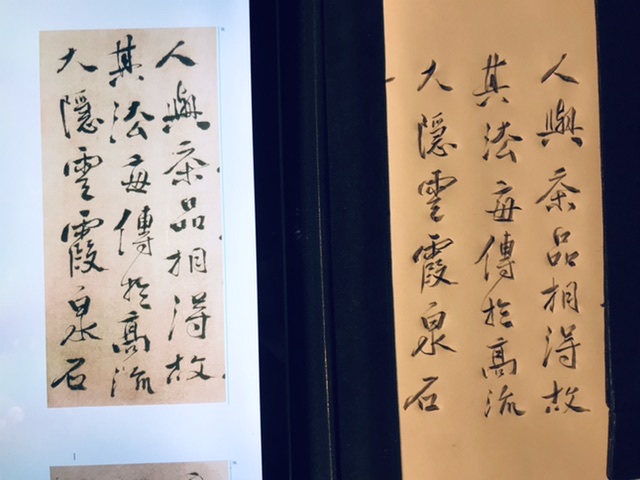 人與茶品相得故
其法每傳於高流
大隱雲霞泉石
人與茶品相得故
其法每傳於高流
大隱雲霞泉石